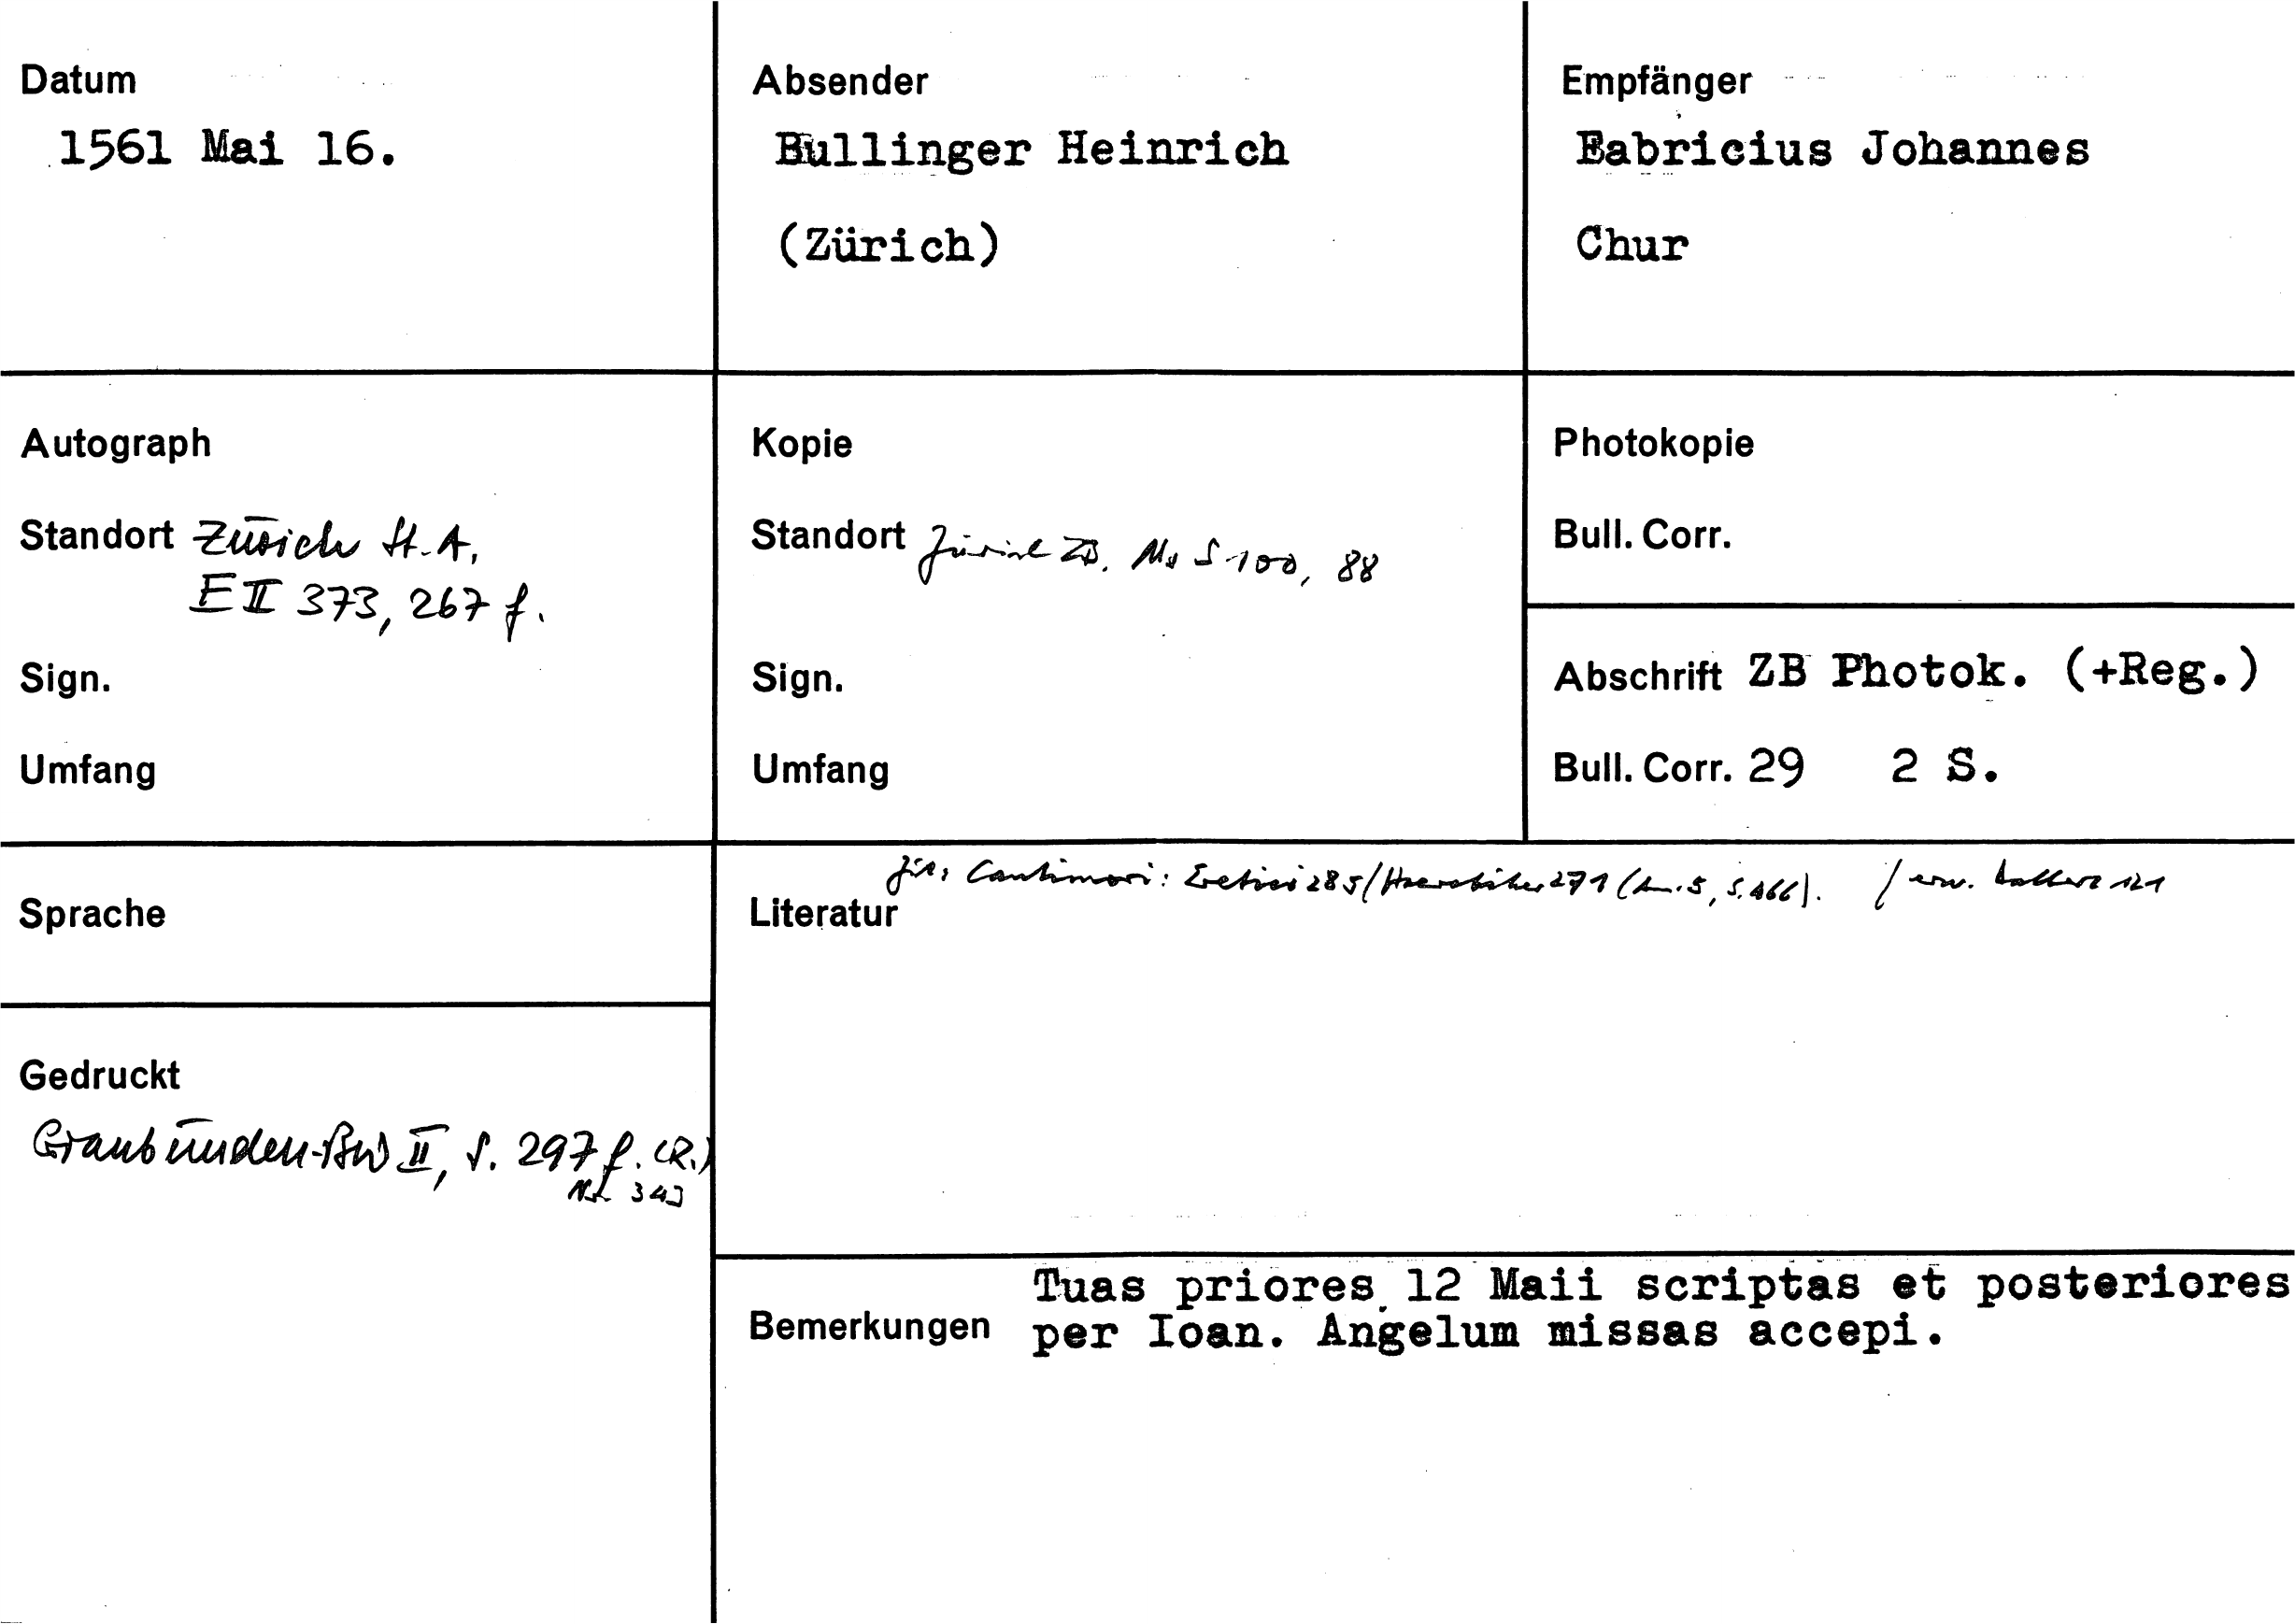 Datum
1561 Mai 16.
Absender
Bullinger Heinrich
(Zürich)
Empfänger
Fabricius Johannes
Chur
Autograph
Standort Zürich St.A,
E II 373, 267 f.
Sign.
Umfang
Kopie
Standort Zürich ZB. Ms S 100, 88
Sign.
Umfang
Photokopie
Bull. Corr.
Abschrift ZB Photok. (+Reg.)
Bull. Corr. 29 2 S.
Sprache
Gedruckt
Graubünden-BW II, S. 297 f. (R.)
Nr. 343
Zit. Cantimori: Eretici 285/Haeretiker 271 (Anm. 5, S. 466). / erw.
Literatur
Bemerkungen
Tuas priores 12 Maii scriptas et posteriores
per Ioan. Angelum missas accepi.